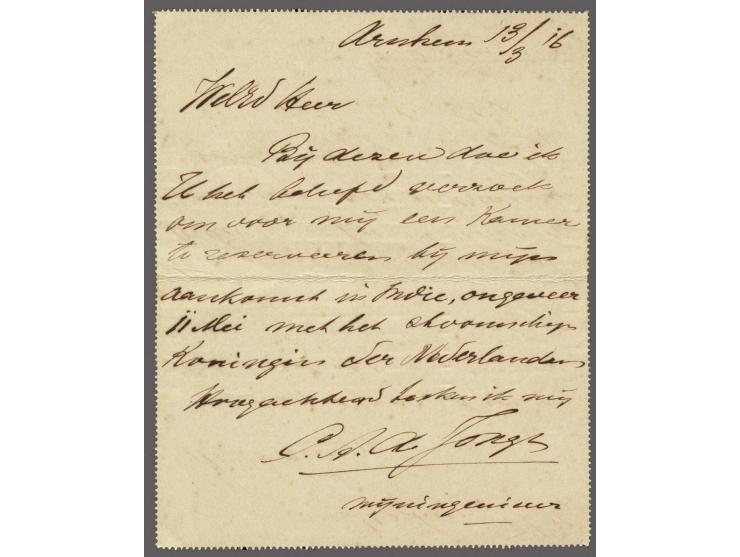 Arnhem 13/3 '16
WelEd Heer
Bij dezen doe ik
U het beleefd verzoek
om voor mij een Kamer
te reserveeren bij mijn
aankomst in Indie, ongeveer
11 Mei met het stoomschip
Koningin der Nederlanden
Hoogachtend teeken ik mij
C. A. de Jongh
mijningenieur